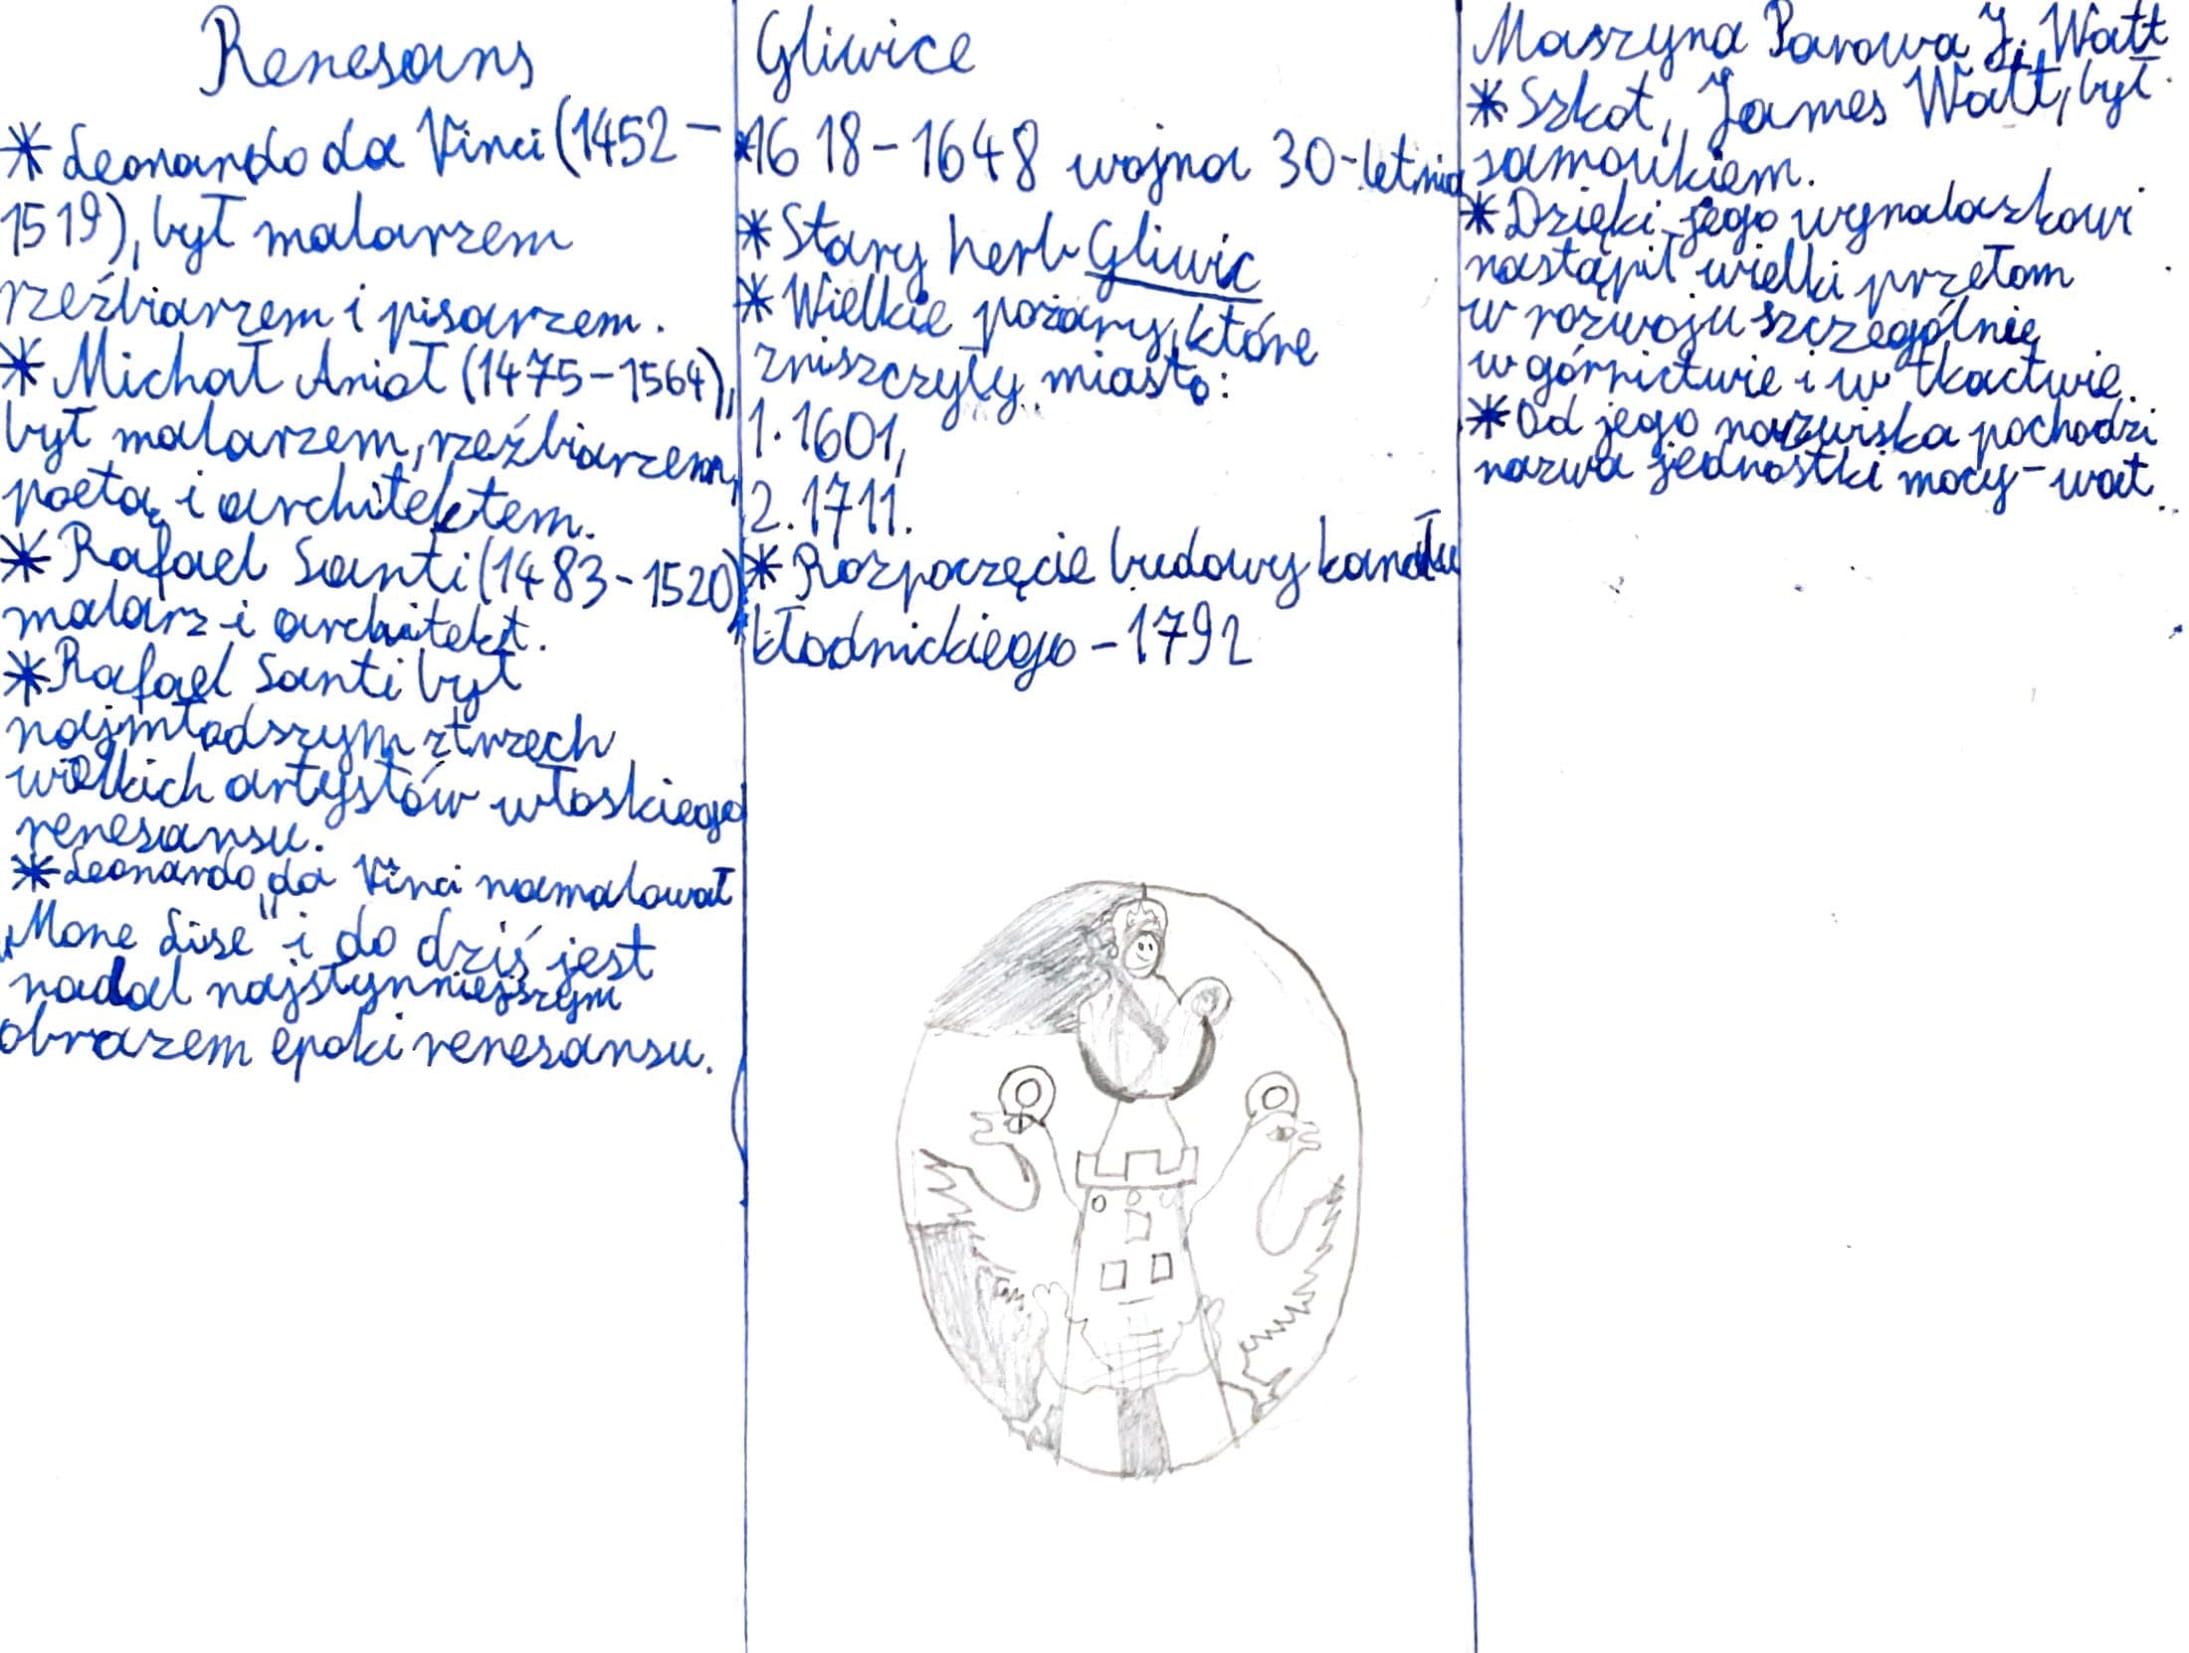 Renesans
* Leonardo da Vinci (1452 –
1519), był malarzem
rzeźbiarzem i pisarzem.
* Michał Anioł (1475–1564),
był malarzem, rzeźbiarzem,
poetą i architektem.
* Rafael Santi (1483-1520)
malarz i architekt.
* Rafael Santi był
najmłodszym z trzech
wielkich artystów włoskiego
renesansu.
* Leonardo da Vinci namalował
„Mone Lise" i do dziś jest
nadal najsłynniejszym
obrazem epoki renesansu.
Gliwice
* 1618–1648 wojna 30-letnia
* Stary herb Gliwic
* Wielkie pożary, które
zniszczyły miasto:
1. 1601,
2. 1711.
* Rozpoczęcie budowy kanału
kłodnickiego – 1792
Maszyna Parowa J. Watt
* Szkot, James Watt, był
samoukiem.
* Dzięki jego wynalazkowi
nastąpił wielki przełom
w rozwoju szczególnie
w górnictwie i w tkactwie.
* Od jego nazwiska pochodzi
nazwa jednostki mocy – wat.